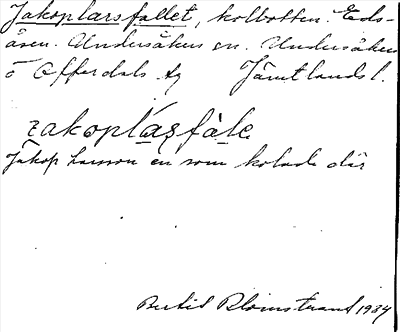 Jakoplarsfallet, kolbotten. Eds-
åsen. Undersåkers sn. Undersåkers
o Offerdals tg Jämtlands l.
jakoplásfàle
Jakop Larsson en som kolade där
Bertil Blomstrand 1934